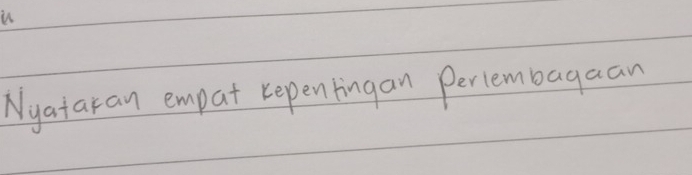 u
Nyatakan empat kepentingan Perlembagaan